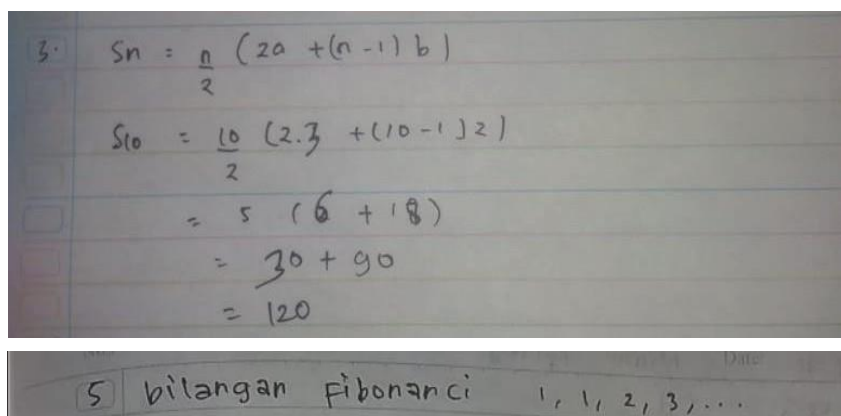 3. Sn = n/2 (2a + (n - 1) b)
S10 = 10/2 (2.3 + (10 - 1) 2)
= 5 (6 + 18)
= 30 + 90
= 120
Date:
5 bilangan Fibonanci 1, 1, 2, 3, ...